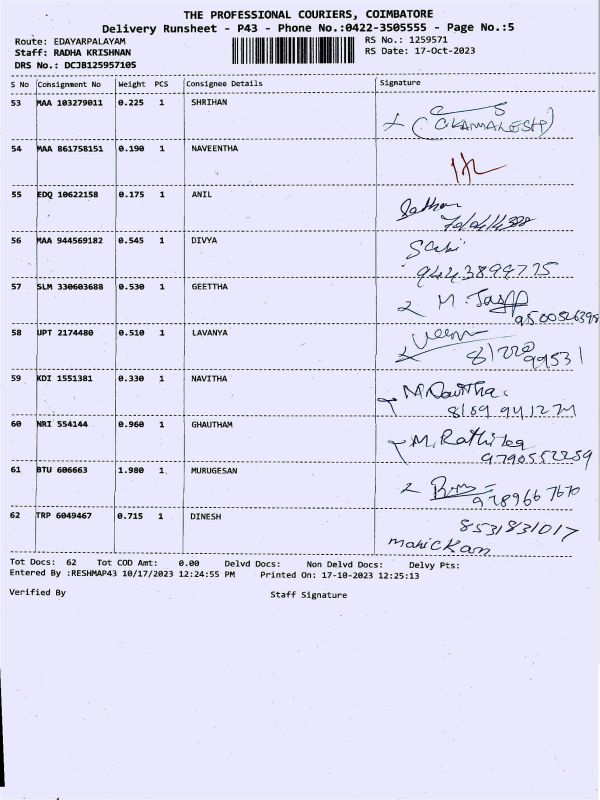 THE PROFESSIONAL COURIERS, COIMBATORE
Delivery Runsheet - P43 - Phone No.:0422-3505555 - Page No.:5
Route: EDAYARPALAYAM
RS No.: 1259571
Staff: RADHA KRISHNAN
RS Date: 17-Oct-2023
DRS No.: DCJB125957105
S No Consignment No Weight PCS Consignee Details Signature
53 MAA 103279011 0.225 1 SHRIHAN
(C.KAMALESH)
54 MAA 861758151 0.190 1 NAVEENTHA
55 EDQ 10622158 0.175 1 ANIL
56 MAA 944569182 0.545 1 DIVYA
9443899775
57 SLM 330603688 0.530 1 GEETTHA
58 UPT 2174480 0.510 1 LAVANYA
59 KDI 1551381 0.330 1 NAVITHA
60 NRI 554144 0.960 1 GHAUTHAM
M. Rathika
9790552259
61 BTU 606663 1.980 1 MURUGESAN
9789667670
62 TRP 6049467 0.715 1 DINESH
8531831017
manickam
Tot Docs: 62 Tot COD Amt: 0.00 Delvd Docs: Non Delvd Docs: Delvy Pts:
Entered By :RESHMAP43 10/17/2023 12:24:55 PM Printed On: 17-10-2023 12:25:13
Verified By Staff Signature